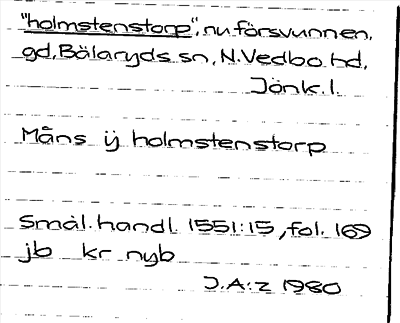 "holmstenstorp", nu försvunnen,
gd, Bälaryds sn, N. Vedbo hd,
Jönk. l.
Måns ÿ holmstenstorp
Smål. handl. 1551:15, fol. 169
jb kr nyb
J.A:z 1980